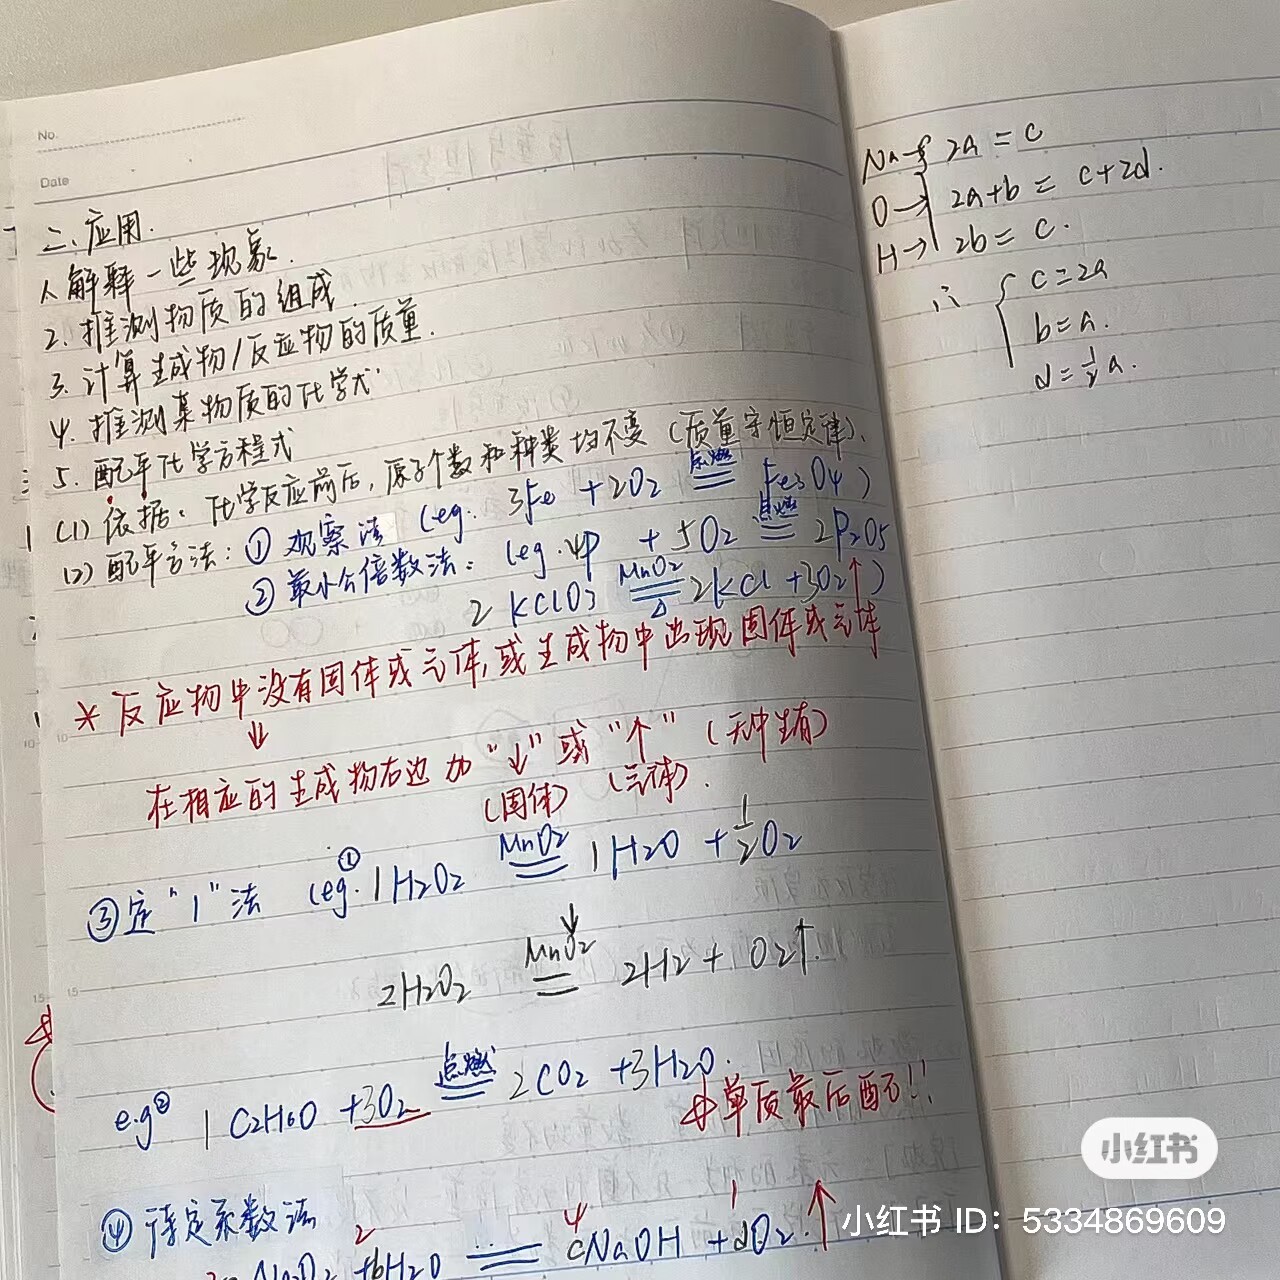 No.
Date
二、应用.
1. 解释一些现象.
2. 推测物质的组成.
3. 计算生成物/反应物的质量.
4. 推测某物质的化学式.
5. 配平化学方程式
(1) 依据: 化学反应前后, 原子个数和种类均不变 (质量守恒定律).
(2) 配平方法: ① 观察法 (eg. 3Fe + 2O2 点燃 Fe3O4)
② 最小公倍数法: (eg. 4P + 5O2 点燃 2P2O5
2KClO3 MnO2 △ 2KCl + 3O2↑)
* 反应物中没有固体或气体, 或生成物中出现固体或气体
↓
在相应的生成物右边加 "↓" 或 "↑" (无中生有)
(固体) (气体).
③ 定"1"法 (eg.① 1H2O2 MnO2 1H2O + 1/2O2
↓
2H2O2 MnO2 2H2 + O2↑.
e.g② 1C2H6O + 3O2 点燃 2CO2 + 3H2O.
单质最后配!!
④ 待定系数法
2 4 1
Na2O2 + bH2O == cNaOH + dO2.↑
Na→ 2a = c
O→ 2a+b = c+2d.
H→ 2b = c.
∴ { c=2a
b=a.
d=1/2a.
15
小红书
小红书 ID: 5334869609